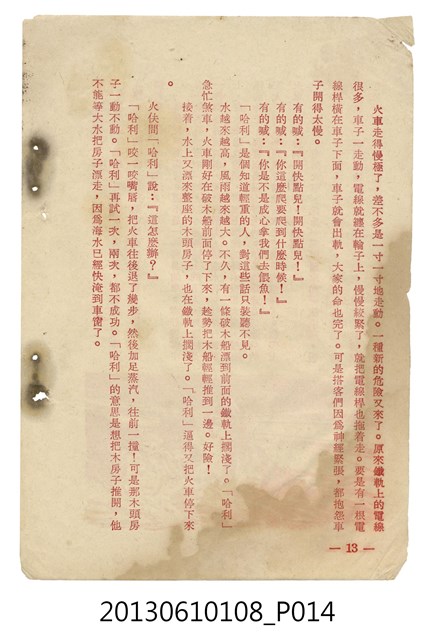 火車走得慢極了，差不多是一寸一寸地走動。一種新的危險又來了。原來鐵軌上的電線
很多，車子一走動，電線就纏在輪子上，慢慢絞緊了，就把電線桿也拖着走。要是有一根電
線桿橫在車子下面，車子就會出軌，大家的命也完了。可是搭客們因爲神經緊張，都抱怨車
子開得太慢。
有的喊：『開快點兒！開快點兒！』
有的喊：『你這麼爬要爬到什麼時候！』
有的喊：『你是不是成心拿我們去餵魚！』
「哈利」是個知道輕重的人，對這些話只裝聽不見。
水越來越高，風雨越來越大。不久，有一條破木船漂到前面的鐵軌上擱淺了。「哈利」
急忙煞車，火車剛好在破木船前面停了下來，趁勢把木船輕輕推到一邊。好險！
接着，水上又漂來整座的木頭房子，也在鐵軌上擱淺了。「哈利」逼得又把火車停下來
。
火伕問「哈利」說：『這怎麼辦？』
「哈利」咬一咬嘴唇，把火車往後退了幾步，然後加足蒸汽，往前一撞！可是那木頭房
子一動不動。「哈利」再試一次，兩次，都不成功。「哈利」的意思是想把木房子推開，他
不能等大水把房子漂走，因爲海水已經快淹到車窗了。
— 13 —
20130610108_P014